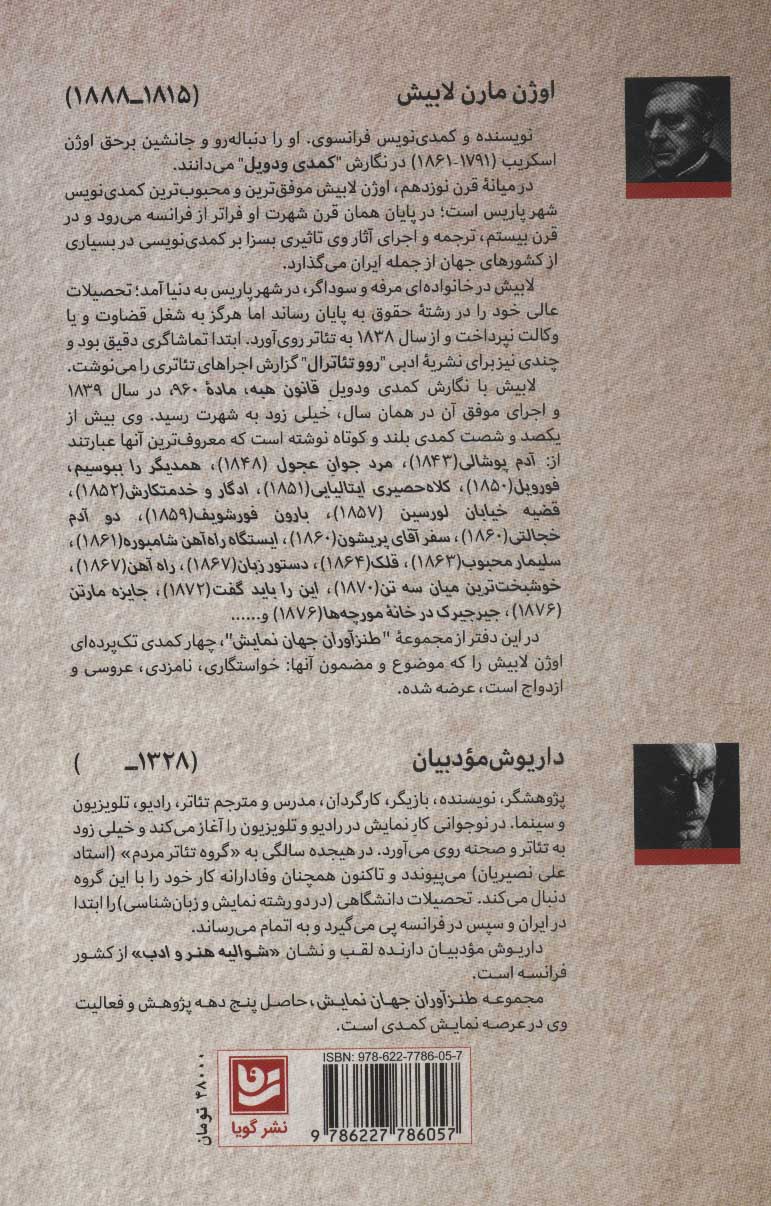 اوژن مارن لابیش (۱۸۱۵ـ۱۸۸۸)
نویسنده و کمدی‌نویس فرانسوی. او را دنباله‌رو و جانشین برحق اوژن
اسکریب (۱۷۹۱-۱۸۶۱) در نگارش "کمدی ودویل" می‌دانند.
در میانهٔ قرن نوزدهم، اوژن لابیش موفق‌ترین و محبوب‌ترین کمدی‌نویس
شهر پاریس است؛ در پایان همان قرن شهرت او فراتر از فرانسه می‌رود و در
قرن بیستم، ترجمه و اجرای آثار وی تاثیری بسزا بر کمدی‌نویسی در بسیاری
از کشورهای جهان از جمله ایران می‌گذارد.
لابیش در خانواده‌ای مرفه و سوداگر، در شهر پاریس به دنیا آمد؛ تحصیلات
عالی خود را در رشتهٔ حقوق به پایان رساند اما هرگز به شغل قضاوت و یا
وکالت نپرداخت و از سال ۱۸۳۸ به تئاتر روی‌آورد. ابتدا تماشاگری دقیق بود و
چندی نیز برای نشریهٔ ادبی "روو تئاترال" گزارش اجراهای تئاتری را می‌نوشت.
لابیش با نگارش کمدی ودویلِ قانون هبه، مادهٔ ۹۶۰، در سال ۱۸۳۹
و اجرای موفق آن در همان سال، خیلی زود به شهرت رسید. وی بیش از
یکصد و شصت کمدی بلند و کوتاه نوشته است که معروف‌ترین آنها عبارتند
از: آدم پوشالی(۱۸۴۳)، مرد جوانِ عجول (۱۸۴۸)، همدیگر را ببوسیم،
فورویل(۱۸۵۰)، کلاه‌حصیری ایتالیایی(۱۸۵۱)، ادگار و خدمتکارش(۱۸۵۲)،
قضیه خیابان لورسین (۱۸۵۷)، بارون فورشویف(۱۸۵۹)، دو آدم
خجالتی(۱۸۶۰)، سفر آقای پریشون(۱۸۶۰)، ایستگاه راه‌آهن شامبوره(۱۸۶۱)،
سلیمار محبوب(۱۸۶۳)، قلک(۱۸۶۴)، دستور زبان(۱۸۶۷)، راه آهن(۱۸۶۷)،
خوشبخت‌ترین میان سه تن(۱۸۷۰)، این را باید گفت(۱۸۷۲)، جایزه مارتن
(۱۸۷۶)، جیرجیرک در خانهٔ مورچه‌ها(۱۸۷۶) و......
در این دفتر از مجموعهٔ "طنزآوران جهان نمایش"، چهار کمدی تک‌پرده‌ای
اوژن لابیش را که موضوع و مضمون آنها: خواستگاری، نامزدی، عروسی و
ازدواج است، عرضه شده.
داریوش مؤدبیان (۱۳۲۸ـ )
پژوهشگر، نویسنده، بازیگر، کارگردان، مدرس و مترجم تئاتر، رادیو، تلویزیون
و سینما. در نوجوانی کارِ نمایش در رادیو و تلویزیون را آغاز می‌کند و خیلی زود
به تئاتر و صحنه روی می‌آورد. در هیجده سالگی به «گروه تئاتر مردم» (استاد
علی نصیریان) می‌پیوندد و تاکنون همچنان وفادارانه کار خود را با این گروه
دنبال می‌کند. تحصیلات دانشگاهی (در دو رشته نمایش و زبان‌شناسی)را ابتدا
در ایران و سپس در فرانسه پی می‌گیرد و به اتمام می‌رساند.
داریوش مؤدبیان دارنده لقب و نشان «شوالیه هنر و ادب» از کشور
فرانسه است.
مجموعه طنزآوران جهان نمایش، حاصل پنج دهه پژوهش و فعالیت
وی در عرصه نمایش کمدی است.
ISBN: 978-622-7786-05-7
9 786227 786057
نشر گویا
۴۸۰۰۰ تومان